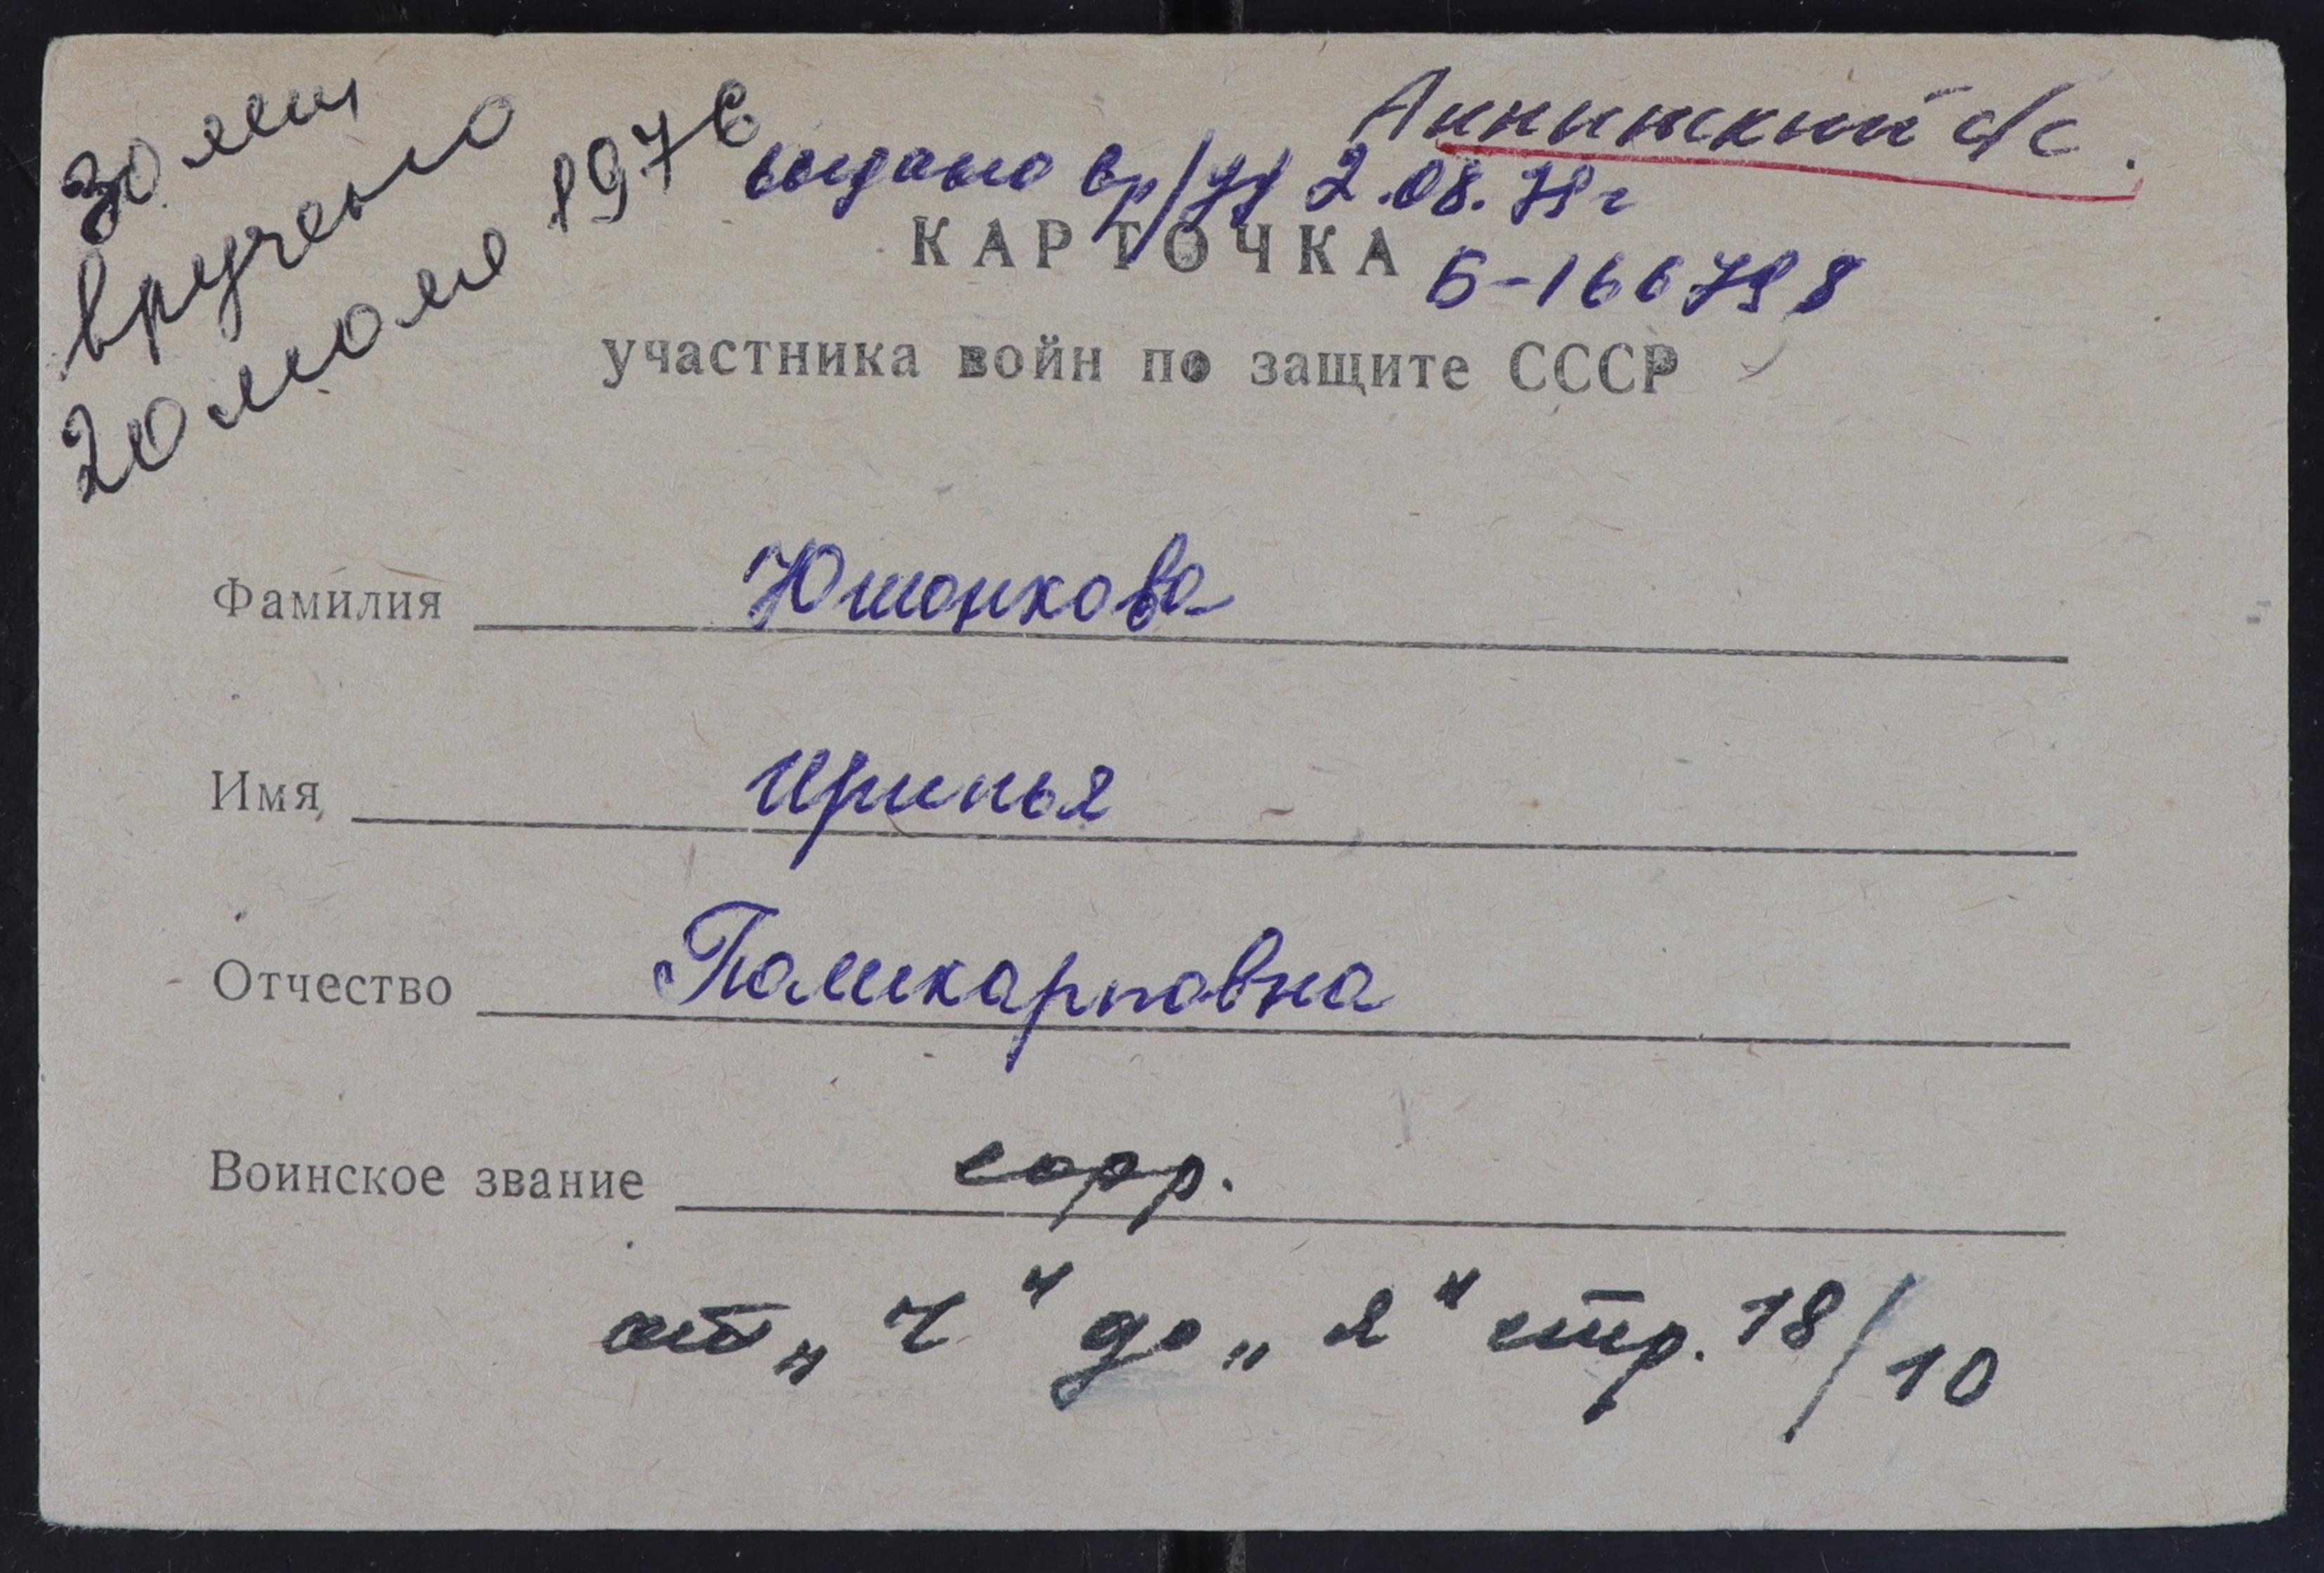 30 лет
вручено
20 июля 1976
Аннинский с/с.
выдано вр/уд 2.08.79 г
КАРТОЧКА
Б-166798
участника войн по защите СССР
Фамилия Юшонкова
Имя Иринья
Отчество Поликарповна
Воинское звание
от „Ч" до „Я" стр. 18/10